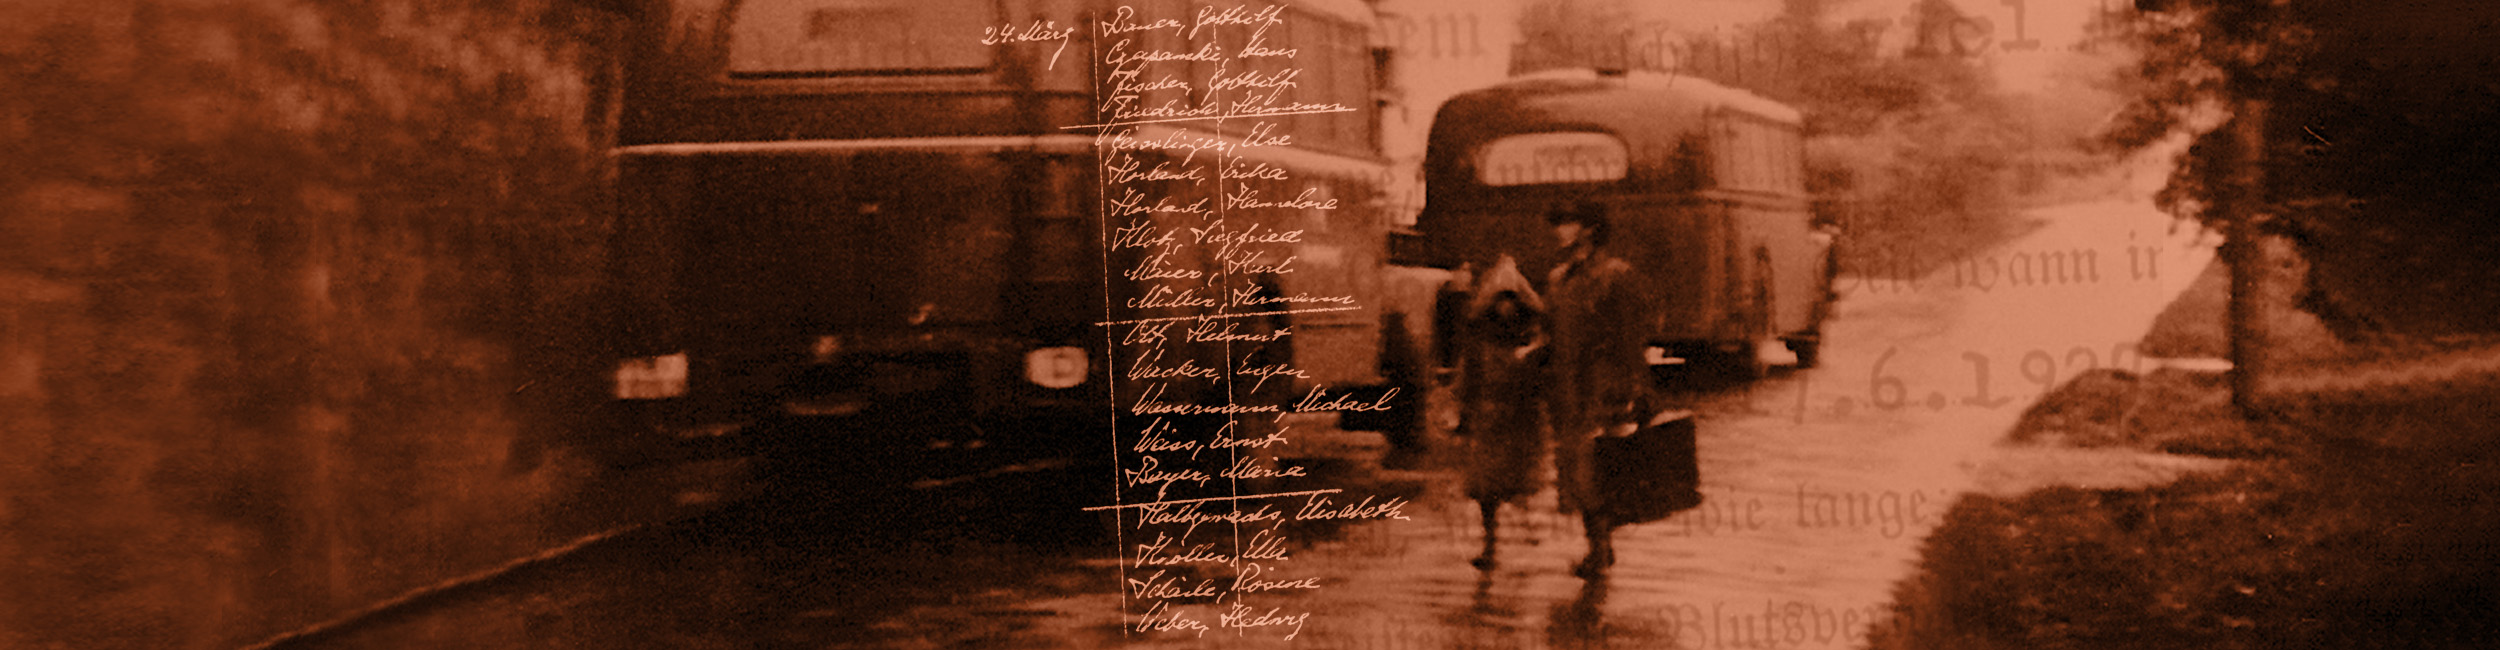 24. März
Bauer, Gotthilf
Czapanski, Hans
Fischer, Gotthilf
Friedrich, Hermann
Geisslinger, Else
Horland, Erika
Horland, Hannelore
Klotz, Siegfried
Maier, Karl
Müller, Hermann
Ott, Helmut
Wacker, Eugen
Wassermann, Michael
Weiss, Ernst
Bayer, Maria
Elisabeth
Ella
Schäile, Rosine
Weber, Hedwig
viel
Seit wann ir
7.6.1927
wie lange
Blutsver